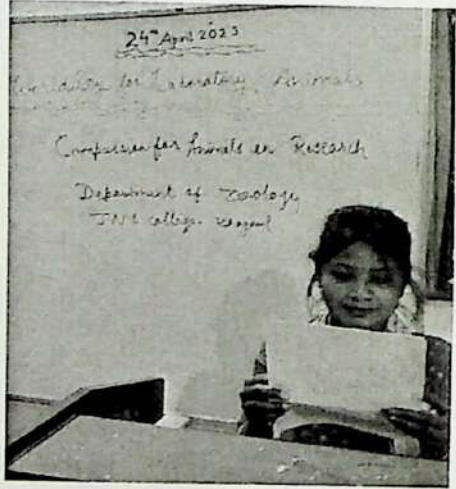 24th April 2023
World day for Laboratory Animals
Compassion for Animals in Research
Department of Zoology
JNL college